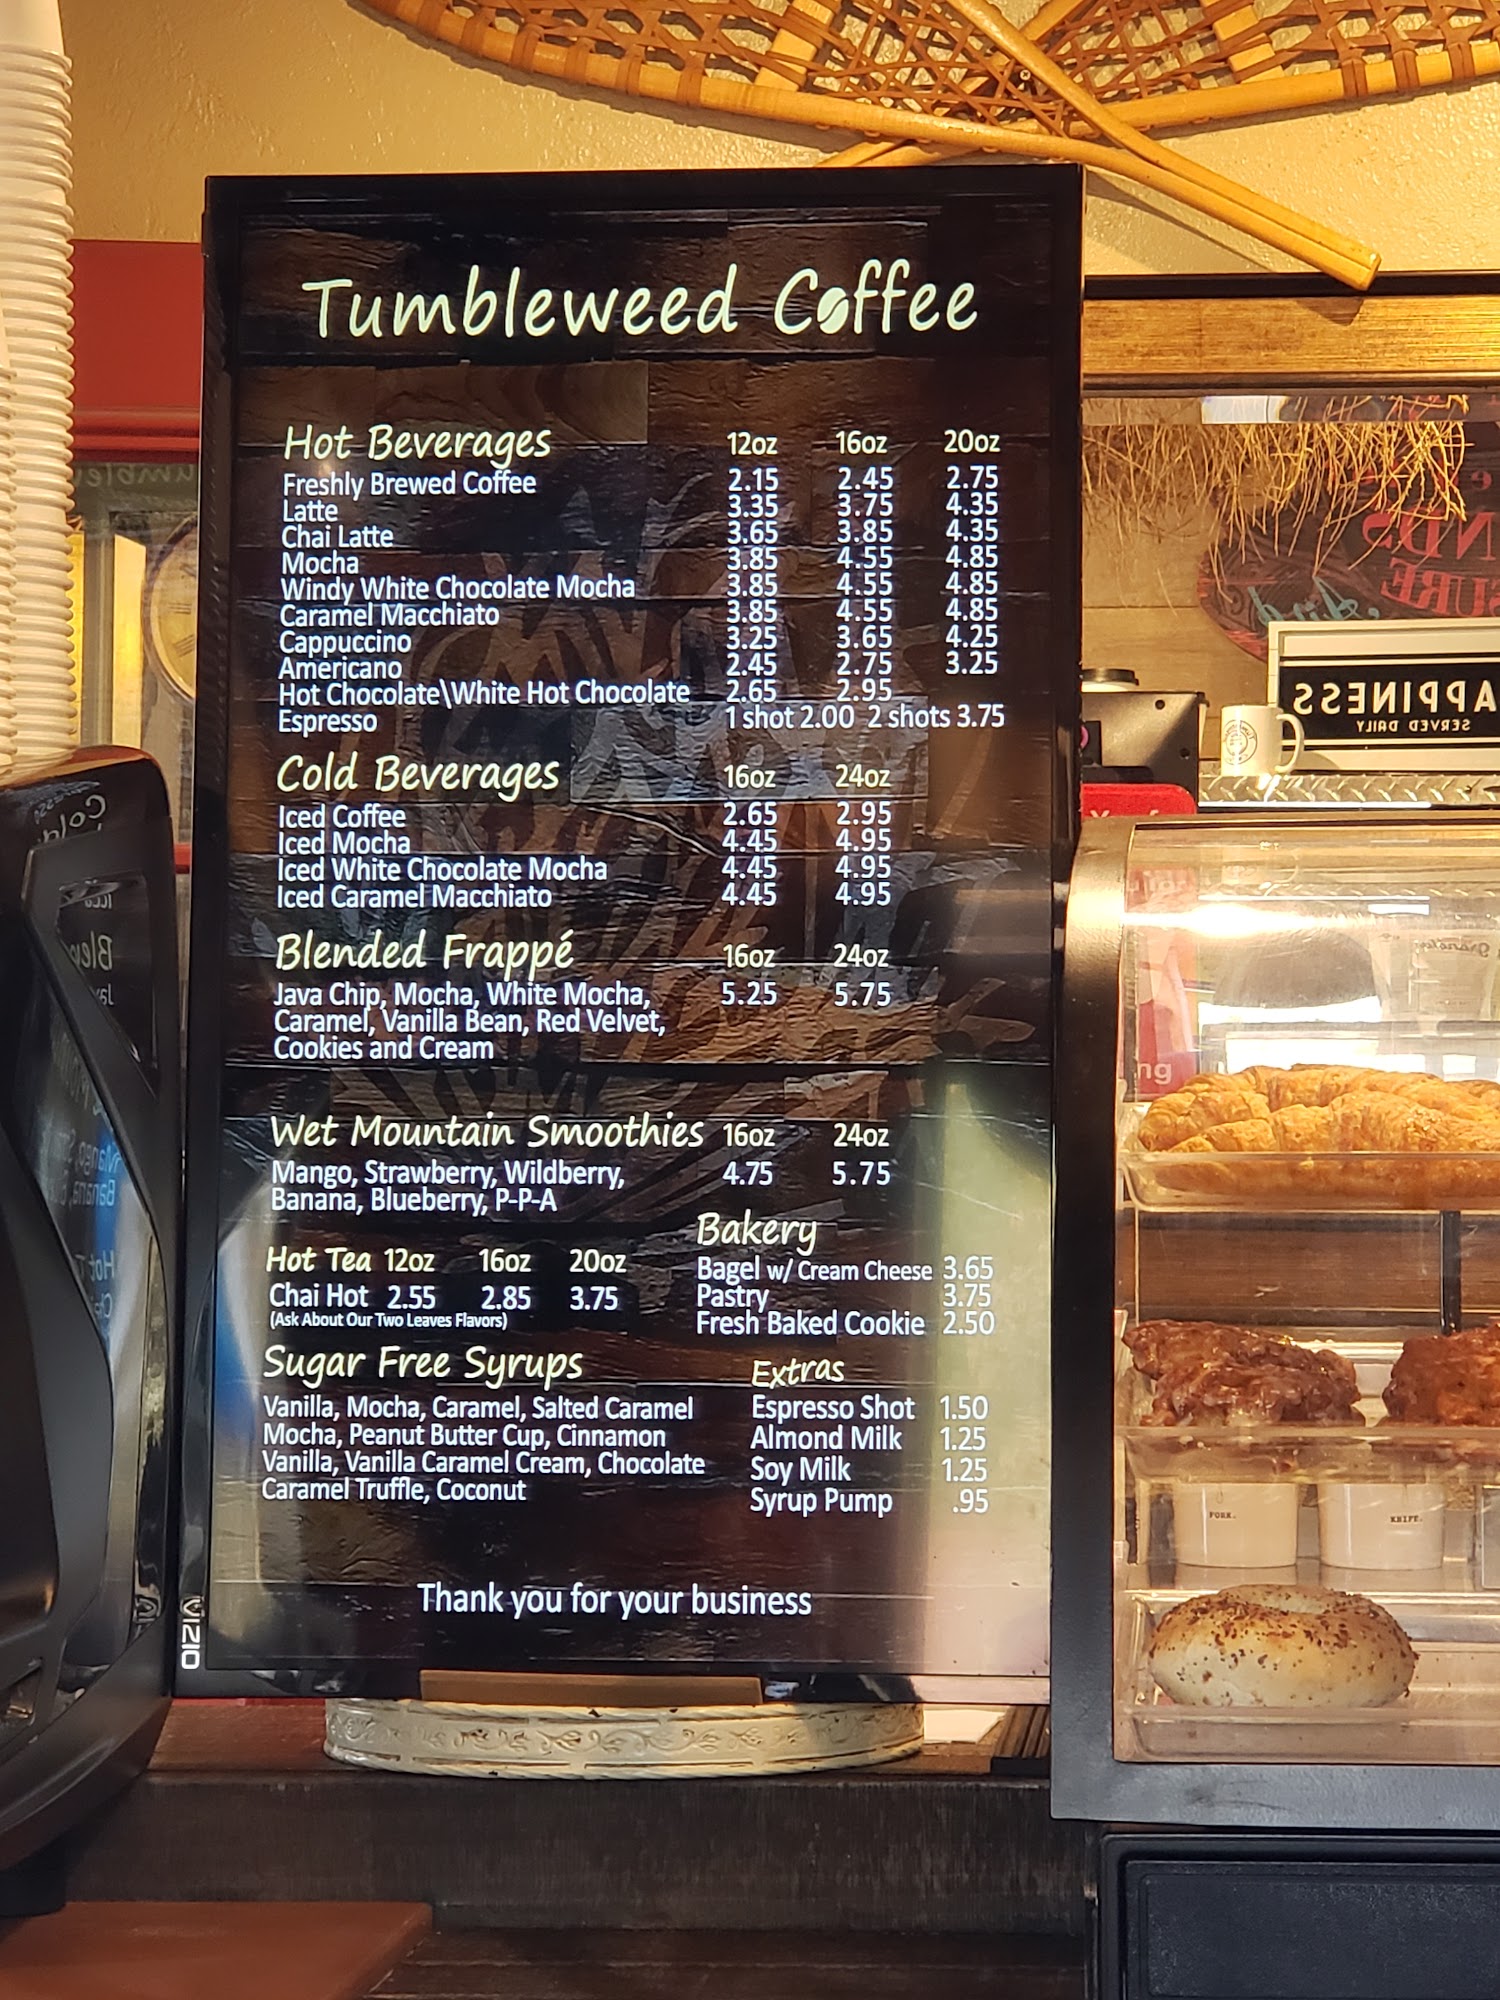 Tumbleweed Coffee
Hot Beverages 12oz 16oz 20oz
Freshly Brewed Coffee 2.15 2.45 2.75
Latte 3.35 3.75 4.35
Chai Latte 3.65 3.85 4.35
Mocha 3.85 4.55 4.85
Windy White Chocolate Mocha 3.85 4.55 4.85
Caramel Macchiato 3.85 4.55 4.85
Cappuccino 3.25 3.65 4.25
Americano 2.45 2.75 3.25
Hot Chocolate\White Hot Chocolate 2.65 2.95
Espresso 1 shot 2.00 2 shots 3.75
Cold Beverages 16oz 24oz
Iced Coffee 2.65 2.95
Iced Mocha 4.45 4.95
Iced White Chocolate Mocha 4.45 4.95
Iced Caramel Macchiato 4.45 4.95
Blended Frappé 16oz 24oz
Java Chip, Mocha, White Mocha, 5.25 5.75
Caramel, Vanilla Bean, Red Velvet,
Cookies and Cream
Wet Mountain Smoothies 16oz 24oz
Mango, Strawberry, Wildberry, 4.75 5.75
Banana, Blueberry, P-P-A
Hot Tea 12oz 16oz 20oz
Chai Hot 2.55 2.85 3.75
(Ask About Our Two Leaves Flavors)
Bakery
Bagel w/ Cream Cheese 3.65
Pastry 3.75
Fresh Baked Cookie 2.50
Sugar Free Syrups
Vanilla, Mocha, Caramel, Salted Caramel
Mocha, Peanut Butter Cup, Cinnamon
Vanilla, Vanilla Caramel Cream, Chocolate
Caramel Truffle, Coconut
Extras
Espresso Shot 1.50
Almond Milk 1.25
Soy Milk 1.25
Syrup Pump .95
Thank you for your business
VIZIO
APPINESS
SERVED DAILY
ng
FORK.
KNIFE.